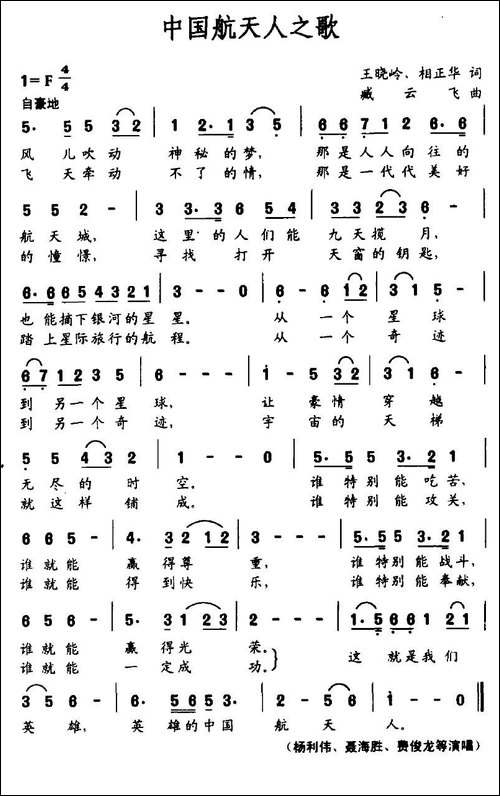 中国航天人之歌
1=F 4/4
王晓岭、相正华 词
臧云飞 曲
自豪地
5· 5 5 3 2 | 1 2· 1 3 5· | 6 6 7 6 1 2 6· 6 |
风 儿吹动 神秘的梦, 那是人人向往的
飞 天牵动 不了的情, 那是一代代美好
5 5 2 - | 3 3· 3 6 5 4 | 3 2 3 6 - |
航天城, 这里的人们能 九天揽月,
的憧憬, 寻找打开 天窗的钥匙,
6· 6 6 5 4 3 2 1 | 3 - - 0 | 1 - 6 - | 6· 6 1 2 | 3 1 5 - |
也能摘下银河的星星。 从一个星球
踏上星际旅行的航程。 从一个奇迹
6 7 1 2 3 5 | 6 - - - | 1 - 5 3 2 | 3 1 7 6 - |
到另一个星球, 让豪情穿越
到另一个奇迹, 宇宙的天梯
5 5 4 3 2 | 2 - - - | 5· 5 5 3· 2 1 |
无尽的时空。 谁特别能吃苦,
就这样铺成。 谁特别能攻关,
6 6 5 - | 4· 3 2 1 2 | 3 - - - | 5· 5 5 3· 2 1 |
谁就能赢得尊重, 谁特别能战斗,
谁就能得到快乐, 谁特别能奉献,
6 5 6 - | 5· 3 1 2 3 | 2 - - - | 1· 5 6 6 2 1 |
谁就能赢得光荣。 这就是我们
谁就能一定成功。
3 5 6 - | 6· 5 6 5 3· | 2 - 5 6 | 1 - - 0 ‖
英雄, 英雄的中国航天人。
(杨利伟、聂海胜、费俊龙等演唱)